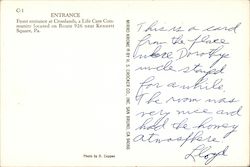 C-1
ENTRANCE
Front entrance at Crosslands, a Life Care Com-
munity located on Route 926 near Kennett
Square, Pa.
This is a card
from the place
where Dorothy's
uncle stayed
for a while.
The room was
very nice and
had the homey
atmosphere
Lloyd
Photo by D. Cuppett